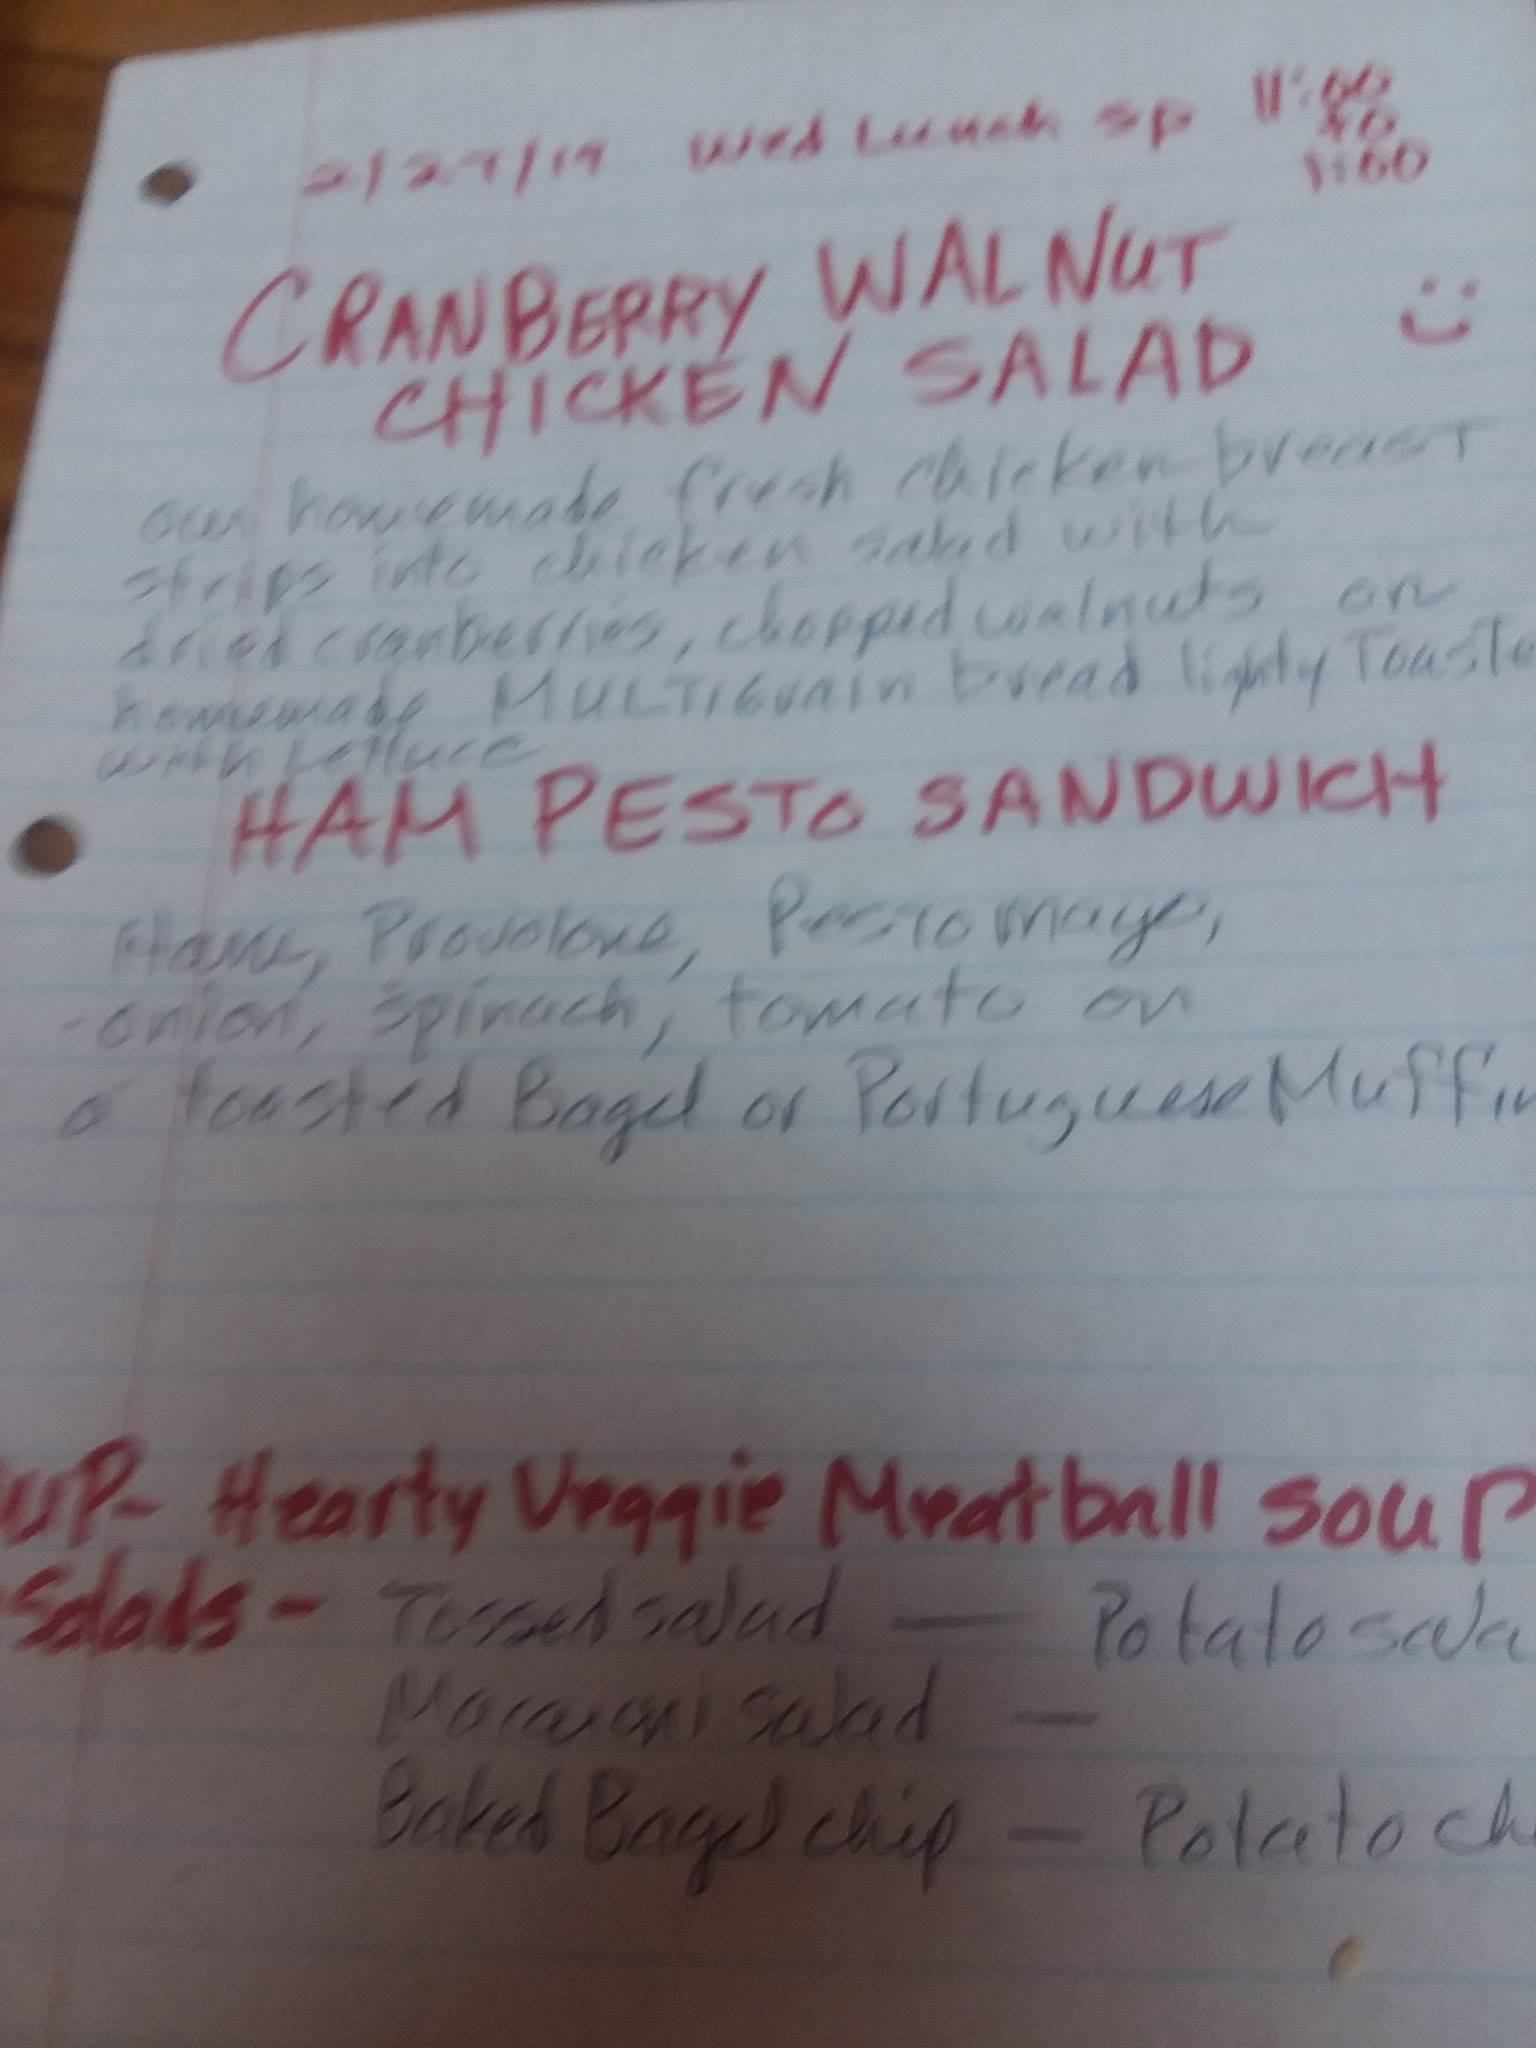 2/27/19 Wed Lunch sp 11:00
to
1:00
CRANBERRY WALNUT
CHICKEN SALAD
our homemade fresh chicken breast
strips into chicken salad with
dried cranberries, chopped walnuts on
homemade MULTIGrain bread lighty Toaste
with Lettuce
HAM PESTO SANDWICH
Ham, Provolone, Pesto mayo,
onion, spinach, tomato on
a toasted Bagel or Portuguese Muffin
UP- Hearty Veggie Meatball soup
Salads - Tossed salad — Potato sala
Macaroni salad —
Baked Bagel chip — Potato ch